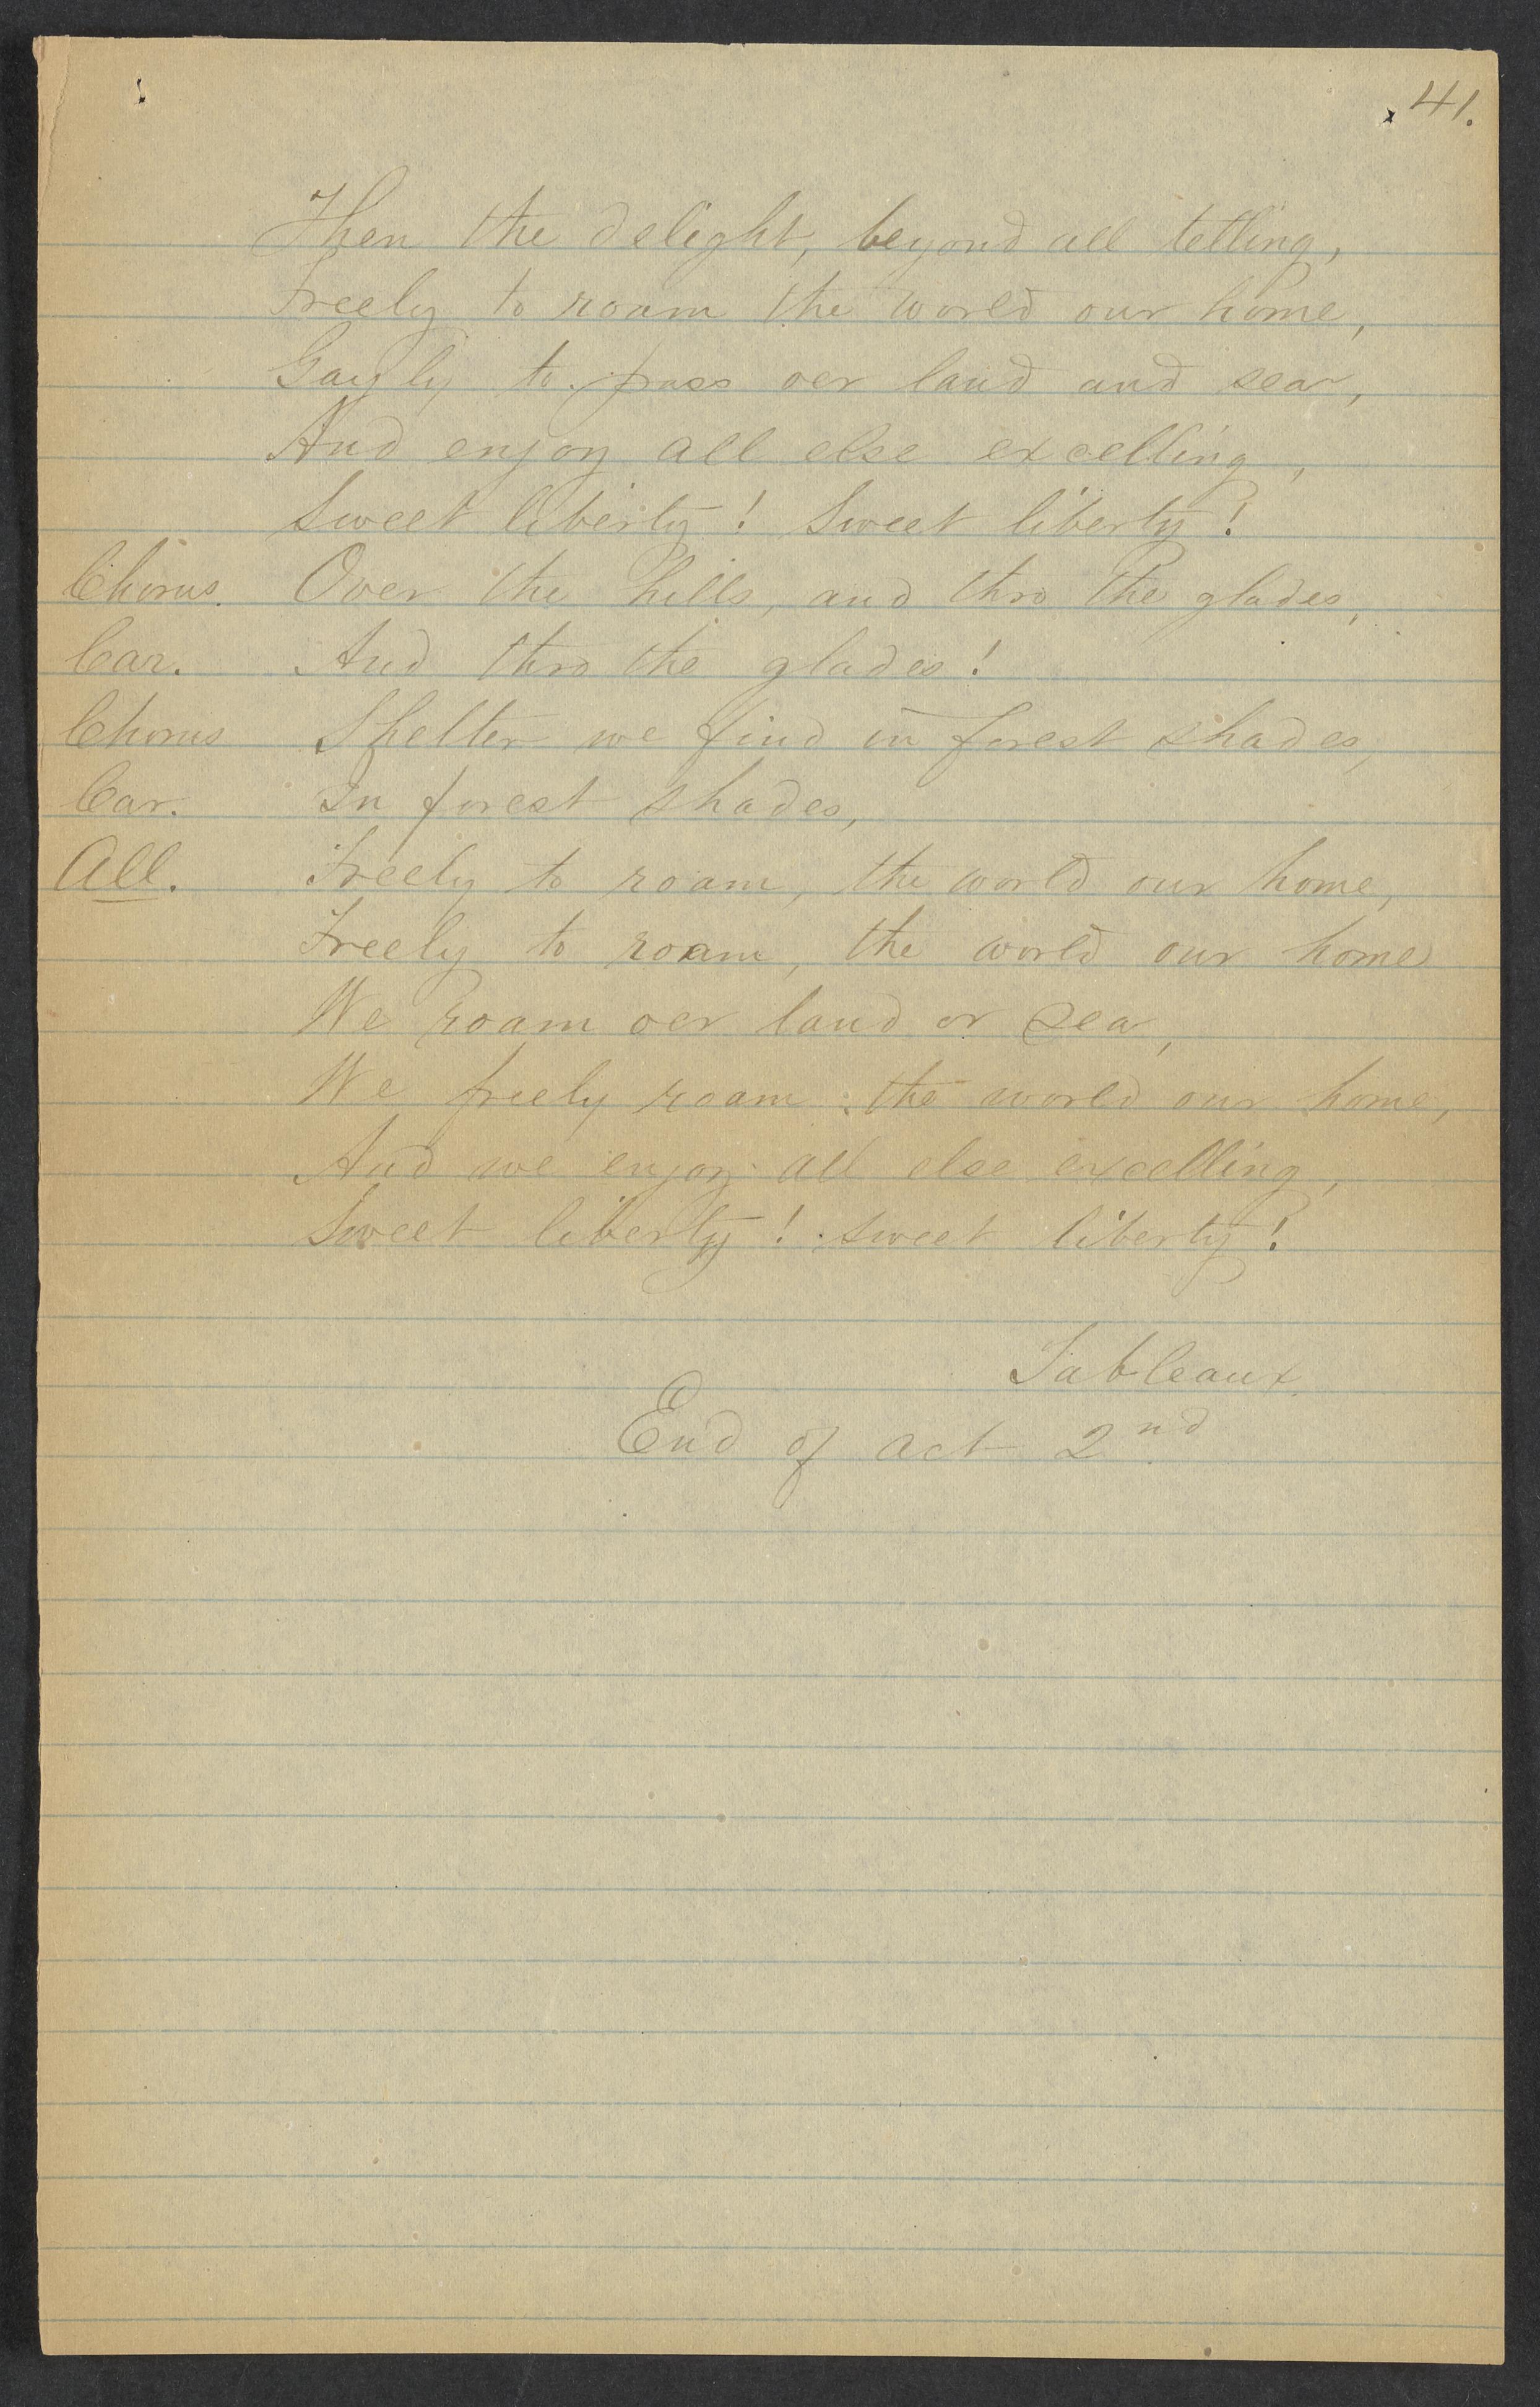 41.
Then the delight, beyond all telling,
Freely to roam the world our home,
Gayly to pass oer land and sea,
And enjoy all else excelling,
Sweet liberty! Sweet liberty!
Chorus. Over the hills, and thro the glades,
Car. And thro the glades!
Chorus Shelter we find in forest shades,
Car. In forest shades,
All. Freely to roam, the world our home,
Freely to roam, the world our home
We roam oer land or sea,
We freely roam the world our home,
And we enjoy all else excelling,
Sweet liberty! sweet liberty!
Tableaux.
End of act 2nd